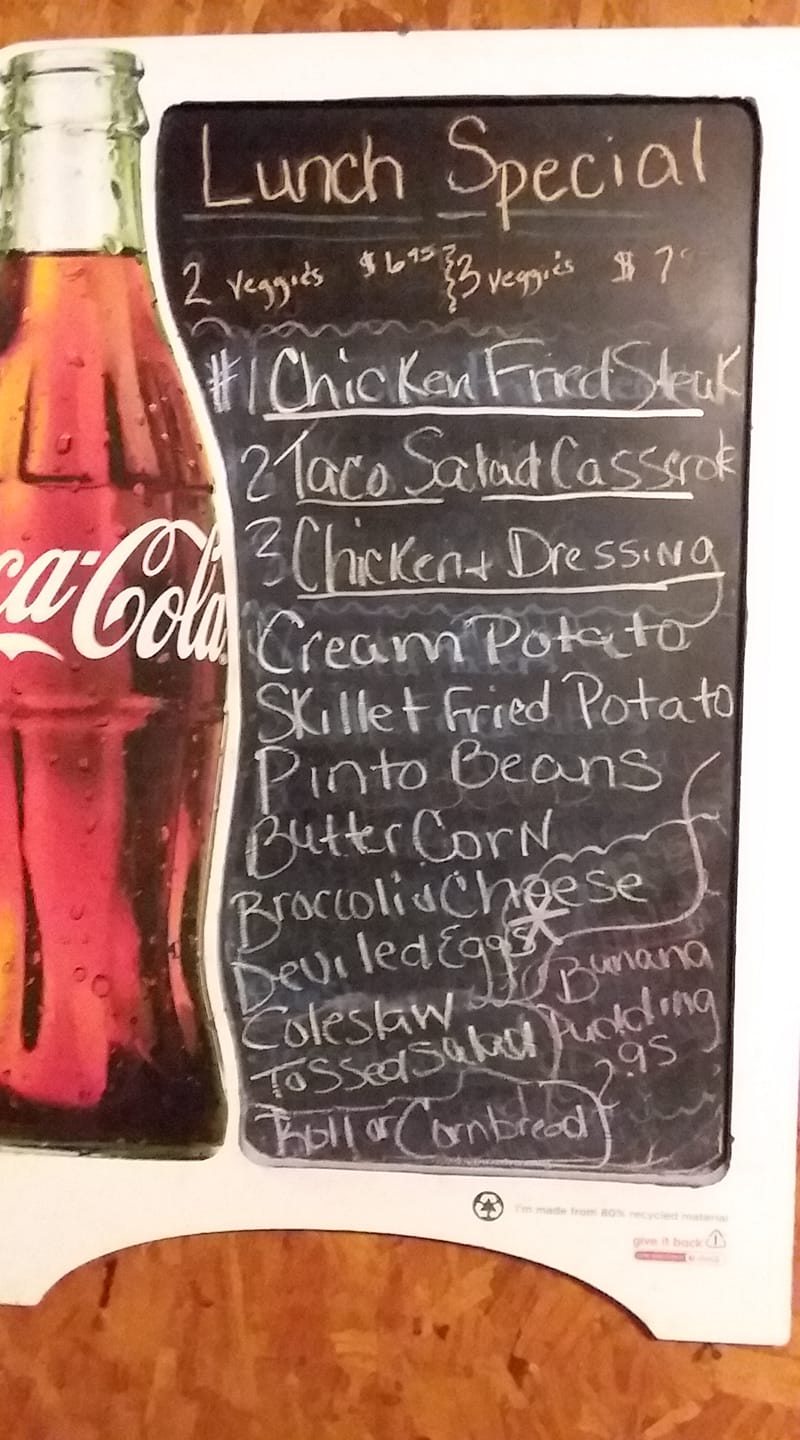 Lunch Special
2 veggies $6 95 3 veggies $7
#1 Chicken Fried Steak
2 Taco Salad Casserok
3 Chicken + Dressing
Cream Potato
Skillet Fried Potato
Pinto Beans
Butter Corn
Broccoli & Cheese
Deviled Eggs *
Coleslaw
Tossed Salad
Roll or Cornbread
Banana
Pudding
2.95
ca-Cola
I'm made from 80% recycled material
give it back